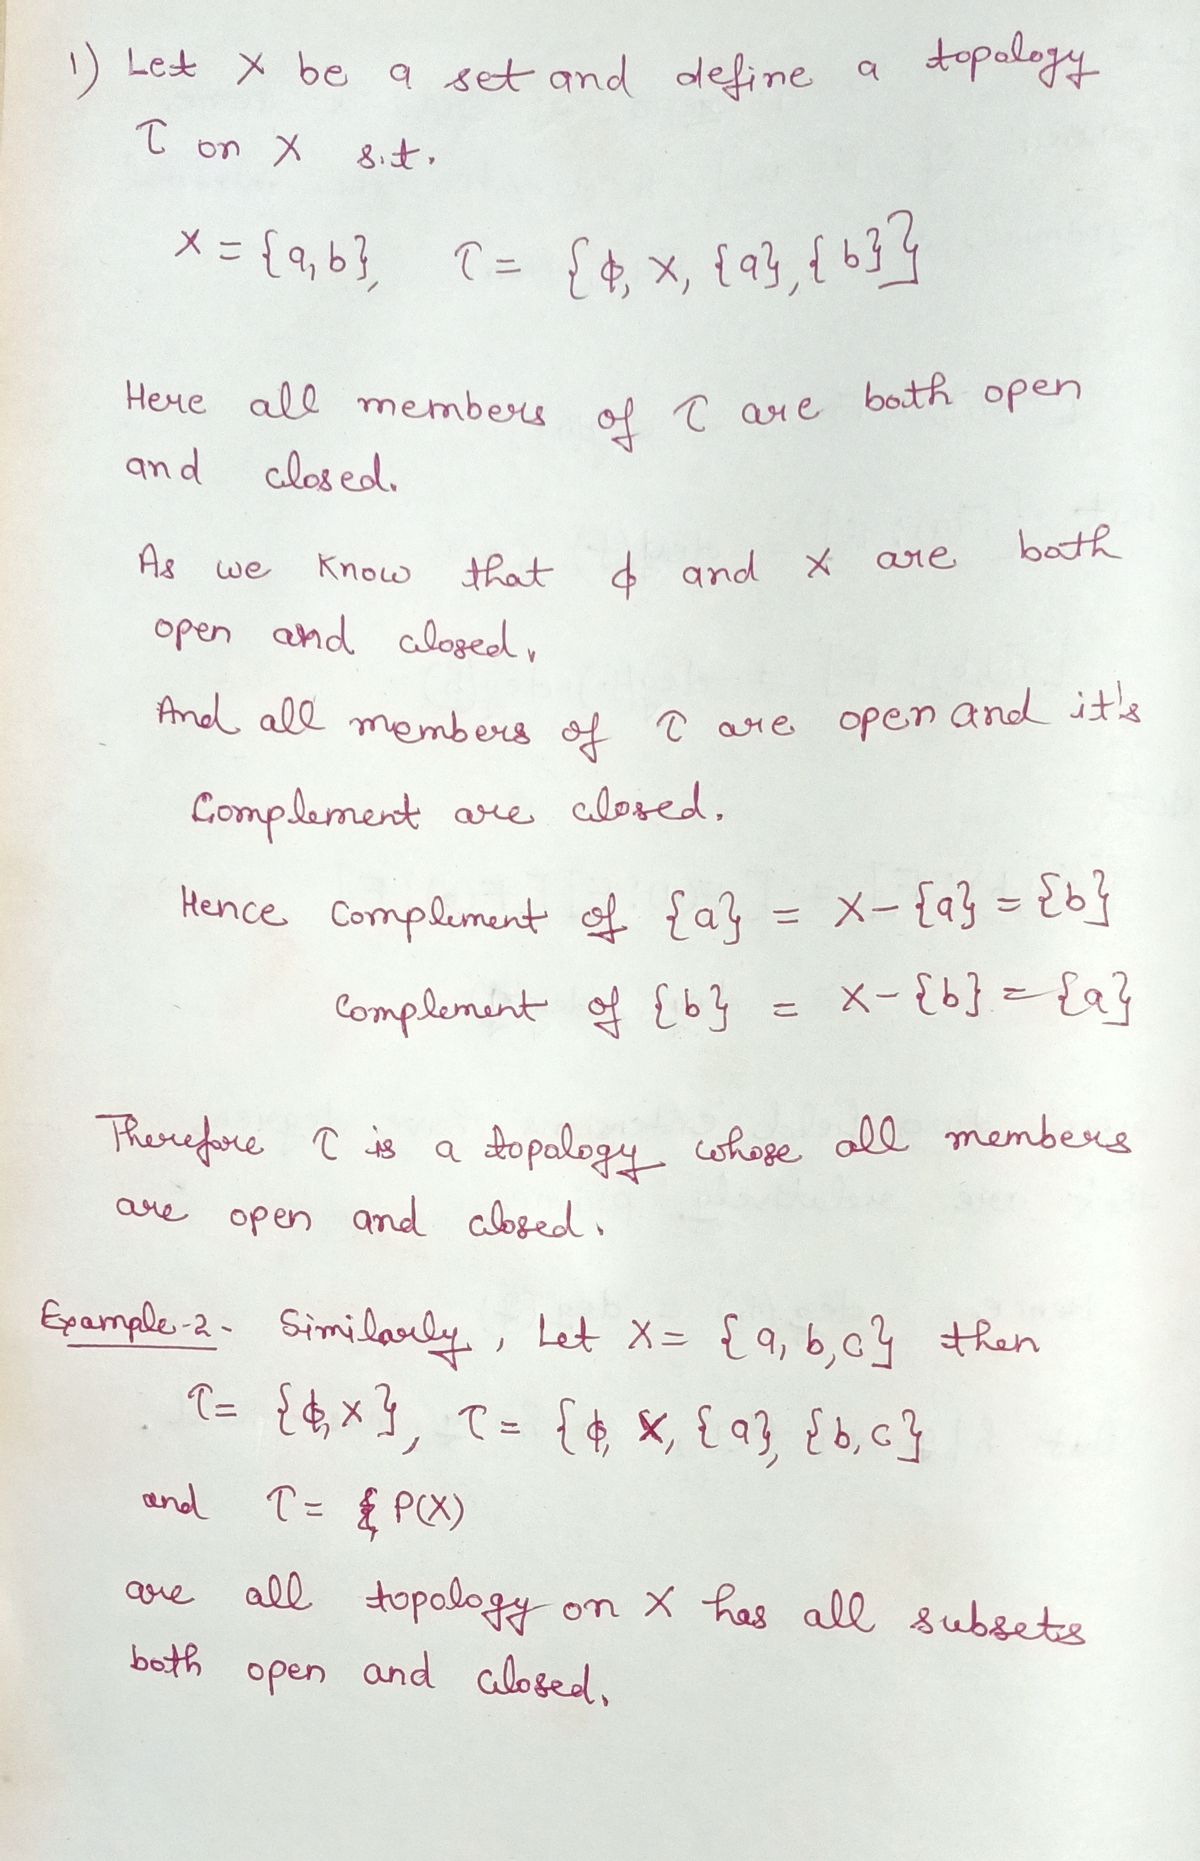 1) Let X be a set and define a topology
τ on X s.t.
X = {a, b}, τ = {ϕ, X, {a}, {b}}
Here all members of τ are both open
and closed.
As we know that ϕ and X are both
open and closed.
And all members of τ are open and it's
Complement are closed.
Hence complement of {a} = X - {a} = {b}
complement of {b} = X - {b} = {a}
Therefore τ is a topology whose all members
are open and closed.
Example-2- Similarly, Let X = {a, b, c} then
τ = {ϕ, X}, τ = {ϕ, X, {a}, {b, c}
and τ = P(X)
are all topology on X has all subsets
both open and closed.